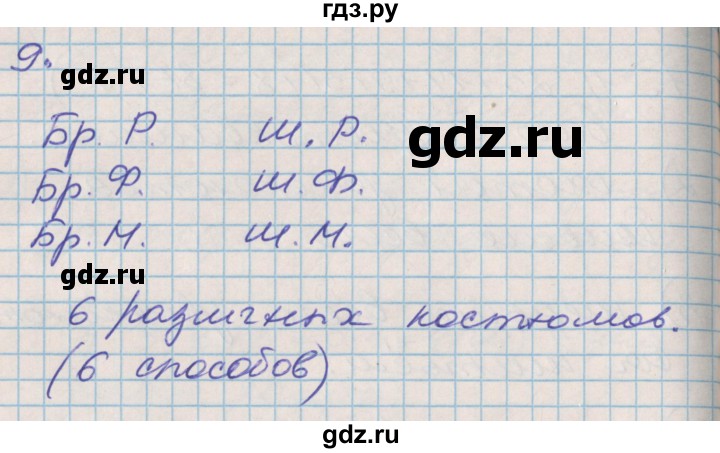 гдз.ру
9.
gdz.ru
gdz.ru
Бр. Р. Ш. Р.
Бр. Ф. Ш. Ф.
Бр. М. Ш. М.
gdz.ru
6 различных костюмов.
(6 способов)
gdz.ru